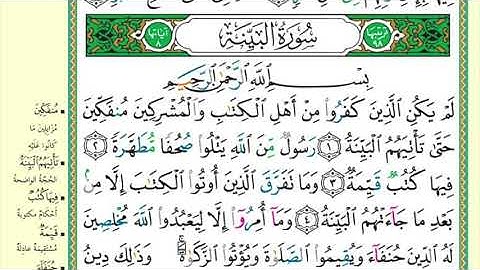 ترتيبها ٩٨ سُورَةُ الْبَيِّنَةِ آياتها ٨
بِسْمِ ٱللَّهِ ٱلرَّحْمَٰنِ ٱلرَّحِيمِ
لَمْ يَكُنِ ٱلَّذِينَ كَفَرُوا۟ مِنْ أَهْلِ ٱلْكِتَٰبِ وَٱلْمُشْرِكِينَ مُنفَكِّينَ
حَتَّىٰ تَأْتِيَهُمُ ٱلْبَيِّنَةُ ١ رَسُولٌ مِّنَ ٱللَّهِ يَتْلُوا۟ صُحُفًا مُّطَهَّرَةً ٢
فِيهَا كُتُبٌ قَيِّمَةٌ ٣ وَمَا تَفَرَّقَ ٱلَّذِينَ أُوتُوا۟ ٱلْكِتَٰبَ إِلَّا مِنۢ
بَعْدِ مَا جَآءَتْهُمُ ٱلْبَيِّنَةُ ٤ وَمَآ أُمِرُوٓا۟ إِلَّا لِيَعْبُدُوا۟ ٱللَّهَ مُخْلِصِينَ
لَهُ ٱلدِّينَ حُنَفَآءَ وَيُقِيمُوا۟ ٱلصَّلَوٰةَ وَيُؤْتُوا۟ ٱلزَّكَوٰةَ وَذَٰلِكَ دِينُ
مُنفَكِّينَ
مُزَايِلينَ مَا
كَانُوا عَلَيْهِ
تَأْتِيَهُمُ الْبَيِّنَةُ
الحُجَّةُ الواضحةُ
فِيهَا كُتُبٌ
أحكامٌ مكتوبةٌ
قَيِّمَةٌ
مُستقيمةٌ عادلةٌ
حُنَفَاءَ